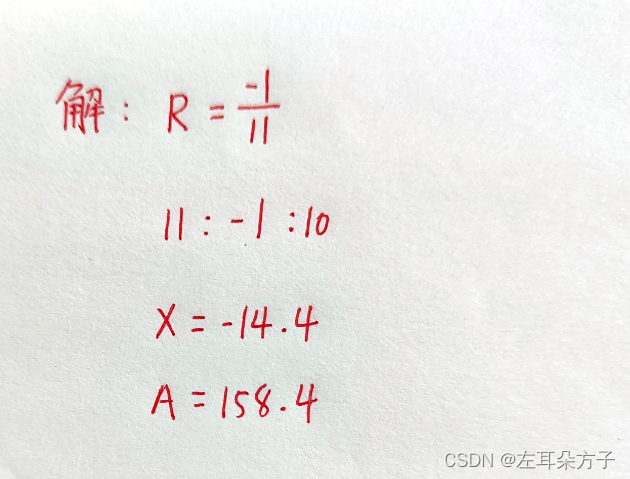 解: R = -1/11
11 : -1 : 10
X = -14.4
A = 158.4
CSDN @左耳朵方子